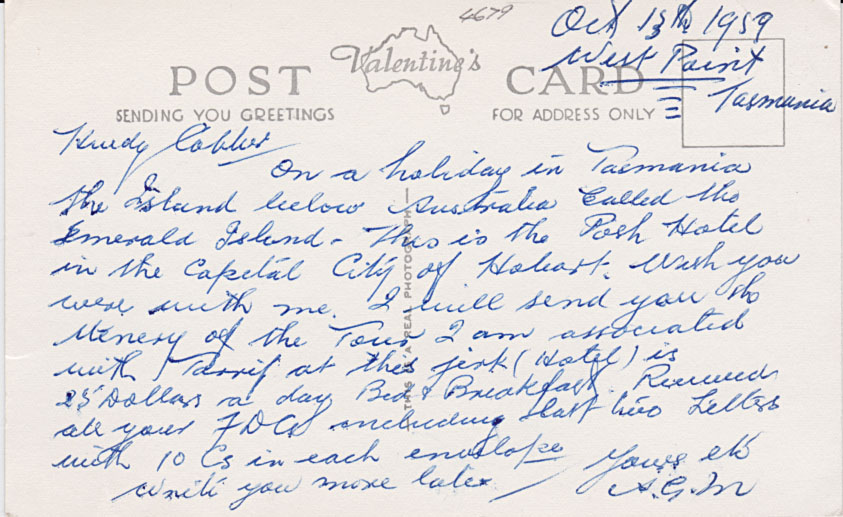 4679
Oct 13th 1959
West Point
Tasmania
Valentine's
POST CARD
SENDING YOU GREETINGS
FOR ADDRESS ONLY
THIS IS A REAL PHOTOGRAPH
Cobber
On a holiday in Tasmania
the Island below Australia Called the
Emerald Island - This is the Posh Hotel
in the Capital City of Hobart. Wish you
were with me. I will send you the
of the Tour I am associated
with Tarrif at this (Hotel) is
25 Dollars a day Bed & Breakfast.
all your FDCs including last two Letters
with 10 Cs in each envelope
Yours etc
Write you more later
A.G.M